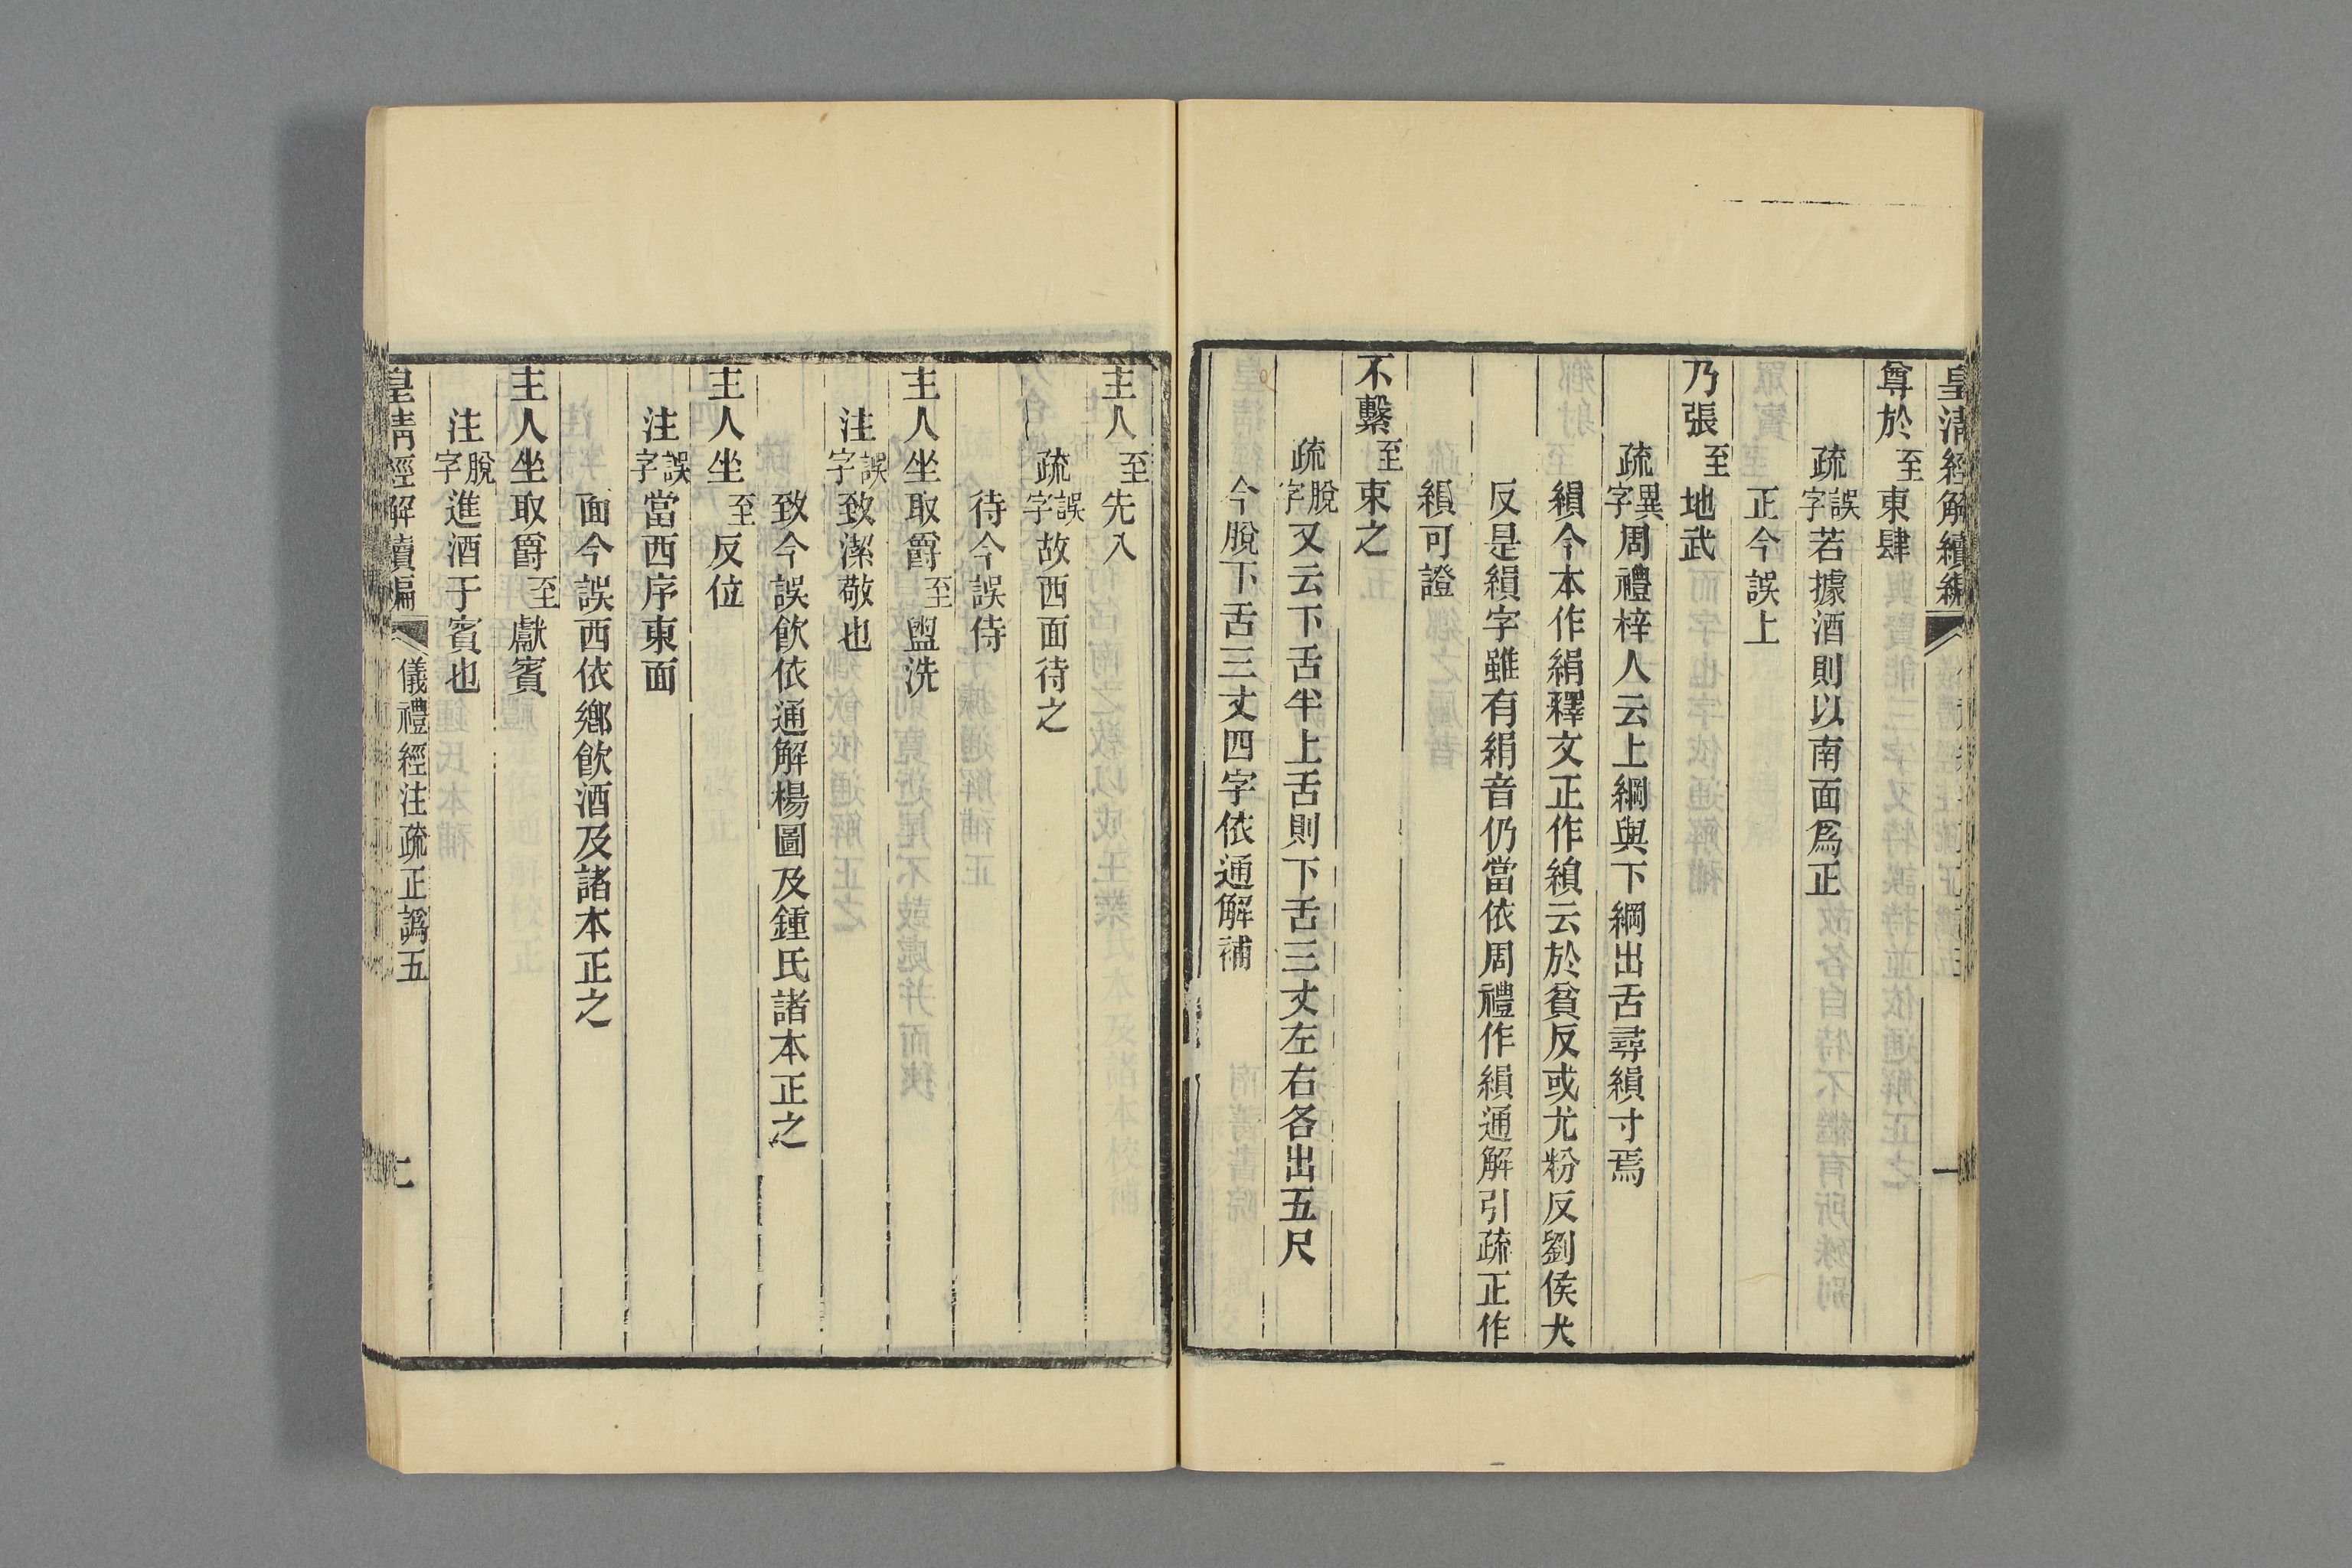 皇清經解續編
一
尊於至東肆
疏誤字若據酒則以南面爲正
正今誤上
乃張至地武
疏異字周禮梓人云上綱與下綱出舌尋縜寸焉
縜今本作絹釋文正作縜云於貧反或尤粉反劉侯犬
反是縜字雖有絹音仍當依周禮作縜通解引疏正作
縜可證
不繫至束之
疏脫字又云下舌半上舌則下舌三丈左右各出五尺
今脫下舌三丈四字依通解補
主人至先入
疏誤字故西面待之
待今誤侍
主人坐取爵至盥洗
注誤字致潔敬也
致今誤飮依通解楊圖及鍾氏諸本正之
主人坐至反位
注誤字當西序東面
面今誤西依鄉飮酒及諸本正之
主人坐取爵至獻賓
注脫字進酒于賓也
皇清經解續編 儀禮經注疏正譌五